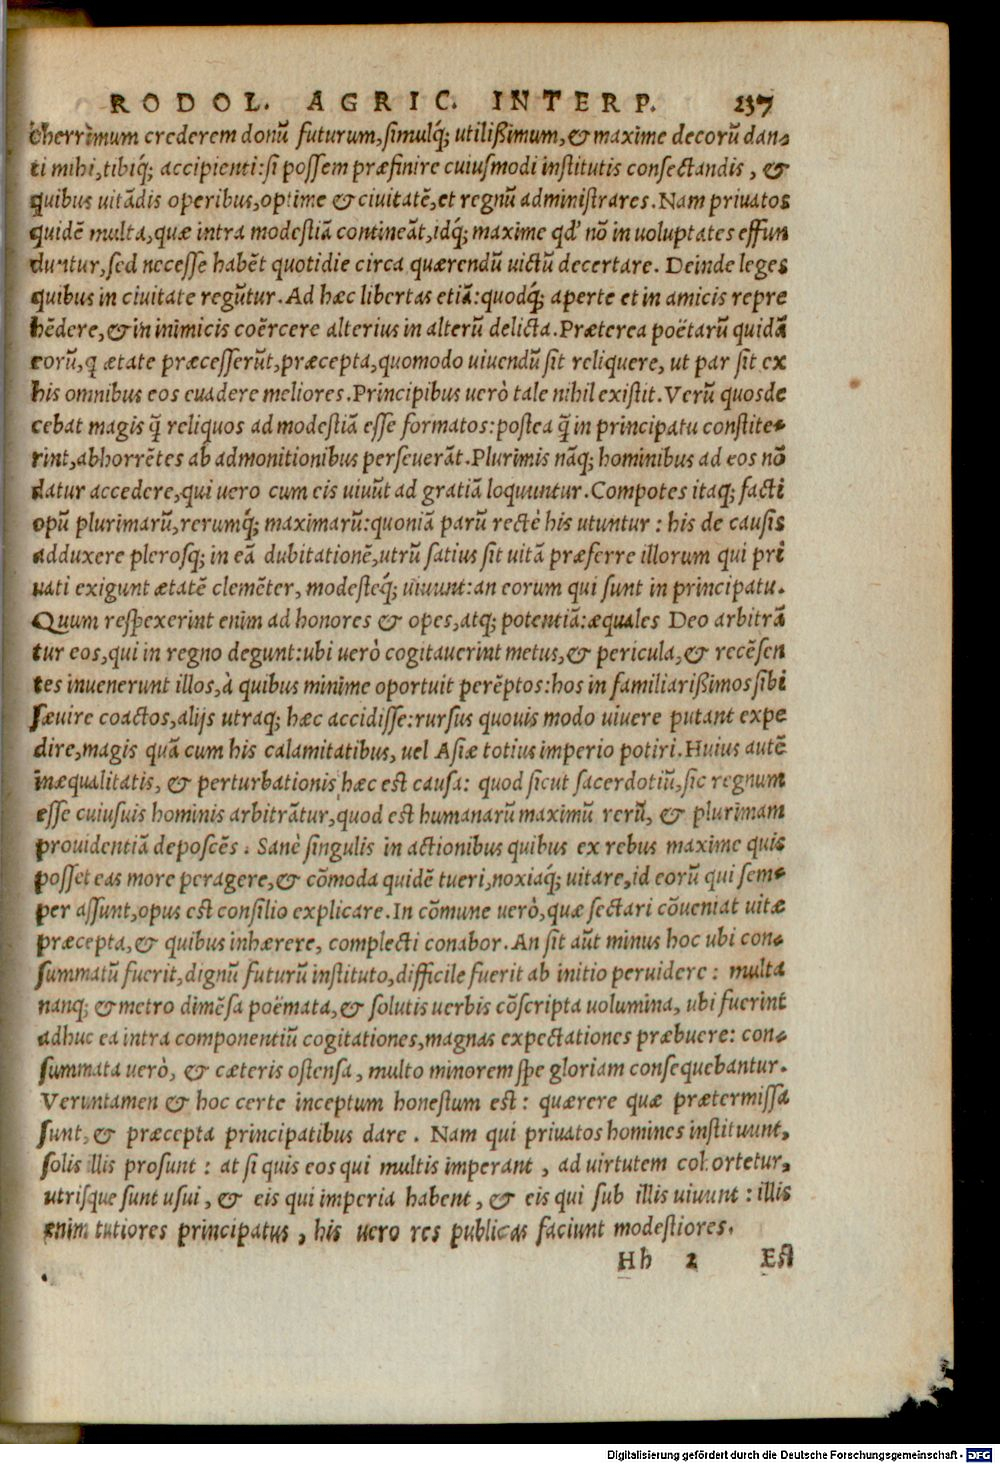 RODOL. AGRIC. INTERP. 237
cherrimum crederem donũ futurum, simulq́; utilißimum, & maxime decorũ dan-
ti mihi, tibiq́; accipienti: si possem præfinire cuiusmodi institutis consectandis, &
quibus uitãdis operibus, optime & ciuitatẽ, et regnũ administrares. Nam priuatos
quidẽ multa, quæ intra modestiã contineãt, idq́; maxime qđ nõ in uoluptates effun
duntur, sed necesse habẽt quotidie circa quærendũ uictũ decertare. Deinde leges
quibus in ciuitate regũtur. Ad hæc libertas etiã: quodq́; aperte et in amicis repre
hẽdere, & in inimicis coërcere alterius in alterũ delicta. Præterea poëtarũ quidã
eorũ, q ætate præcesserũt, præcepta, quomodo uiuendũ sit reliquere, ut par sit ex
his omnibus eos euadere meliores. Principibus uerò tale nihil existit. Verũ quos de
cebat magis q̃ reliquos ad modestiã esse formatos: postea q̃ in principatu constite-
rint, abhorrẽtes ab admonitionibus perseuerãt. Plurimis nãq; hominibus ad eos nõ
datur accedere, qui uero cum eis uiuũt ad gratiã loquuntur. Compotes itaq; facti
opũ plurimarũ, rerumq́; maximarũ: quoniã parũ rectè his utuntur: his de causis
adduxere plerosq; in eã dubitationẽ, utrũ satius sit uitã præferre illorum qui pri
uati exigunt ætatẽ clemẽter, modesteq́; uiuunt: an eorum qui sunt in principatu.
Quum respexerint enim ad honores & opes, atq; potentiã: æquales Deo arbitrã
tur eos, qui in regno degunt: ubi uerò cogitauerint metus, & pericula, & recẽsen
tes inuenerunt illos, à quibus minime oportuit perẽptos: hos in familiarißimos sibi
sæuire coactos, alijs utraq; hæc accidisse: rursus quouis modo uiuere putant expe
dire, magis quã cum his calamitatibus, uel Asiæ totius imperio potiri. Huius autẽ
inæqualitatis, & perturbationis hæc est causa: quod sicut sacerdotiũ, sic regnum
esse cuiusuis hominis arbitrãtur, quod est humanarũ maximũ rerũ, & plurimam
prouidentiã deposcẽs. Sanè singulis in actionibus quibus ex rebus maxime quis
posset eas more peragere, & cõmoda quidẽ tueri, noxiaq́; uitare, id eorũ qui sem-
per assunt, opus est consilio explicare. In cõmune uerò, quæ sectari cõueniat uitæ
præcepta, & quibus inhærere, complecti conabor. An sit aũt minus hoc ubi con-
summatũ fuerit, dignũ futurũ instituto, difficile fuerit ab initio peruidere: multa
nanq; & metro dimẽsa poëmata, & solutis uerbis cõscripta uolumina, ubi fuerint
adhuc ea intra componentiũ cogitationes, magnas expectationes præbuere: con-
summata uerò, & cæteris ostensa, multo minorem spe gloriam consequebantur.
Veruntamen & hoc certe inceptum honestum est: quærere quæ prætermissa
sunt, & præcepta principatibus dare. Nam qui priuatos homines instituunt,
solis illis prosunt: at si quis eos qui multis imperant, ad uirtutem cohortetur,
utrisque sunt usui, & eis qui imperia habent, & eis qui sub illis uiuunt: illis
enim tutiores principatus, his uero res publicas faciunt modestiores.
Hh 2 Est
Digitalisierung gefördert durch die Deutsche Forschungsgemeinschaft - DFG